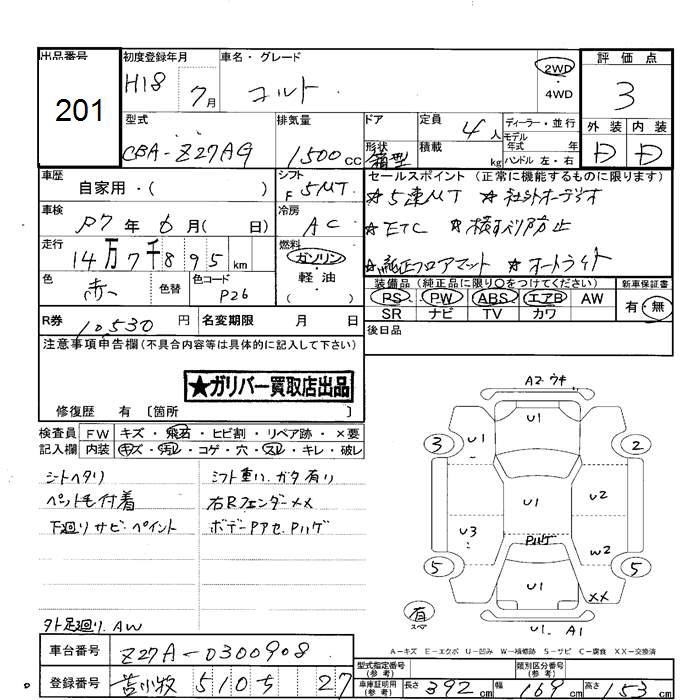 出品番号 初度登録年月 車名・グレード 2WD 評価点
201 H18 7月 コルト ・4WD 3
型式 排気量 ドア 定員 4人 ディーラー・並行 外装 内装
モデル年式 年
CBA-Z27AG 1500cc 形状 箱型 積載 kg ハンドル 左・右 D D
車歴 シフト セールスポイント (正常に機能するものに限ります)
自家用・( ) F 5MT ★5速MT ★社外オーディオ
車検 R7年6月( 日) 冷房 AC ★ETC ★横すべり防止
走行 14万7千895km 燃料 ガソリン ★純正フロアマット ★オートライト
色 赤 色替 色コード P26 軽油 ( )
装備品 (純正品に限り○をつけてください) 新車保証書
PS PW ABS エアB AW 有・無
SR ナビ TV カワ
R券 10,530円 名変期限 月 日 後日品
注意事項申告欄(不具合内容等は具体的に記入して下さい)
★ガリバー買取店出品
修復歴 有 〔箇所 〕
検査員 FW キズ・飛石・ヒビ割・リペア跡・×要
記入欄 内装 キズ・汚レ・コゲ・穴・スレ・キレ・破レ
シートヘタリ シフト重い、ガタ有り
ペット毛付着 右Rフェンダー××
下廻りサビ・ペイント ボデーPアセ、Pハゲ
タト足廻り、AW
A2 ウキ
U1
U1
3 2
U1
U2
U3
Pハゲ
W2
5 5
U1
××
有
スペア
U1、A1
A-キズ E-エクボ U-凹み W-補修跡 S-サビ C-腐食 XX-交換済
車台番号 Z27A-0300908
型式指定番号(参考) 類別区分番号(参考)
登録番号 苫小牧 510 ち 27
車庫証明用(参考) 長さ 392cm 幅 169cm 高さ 153cm